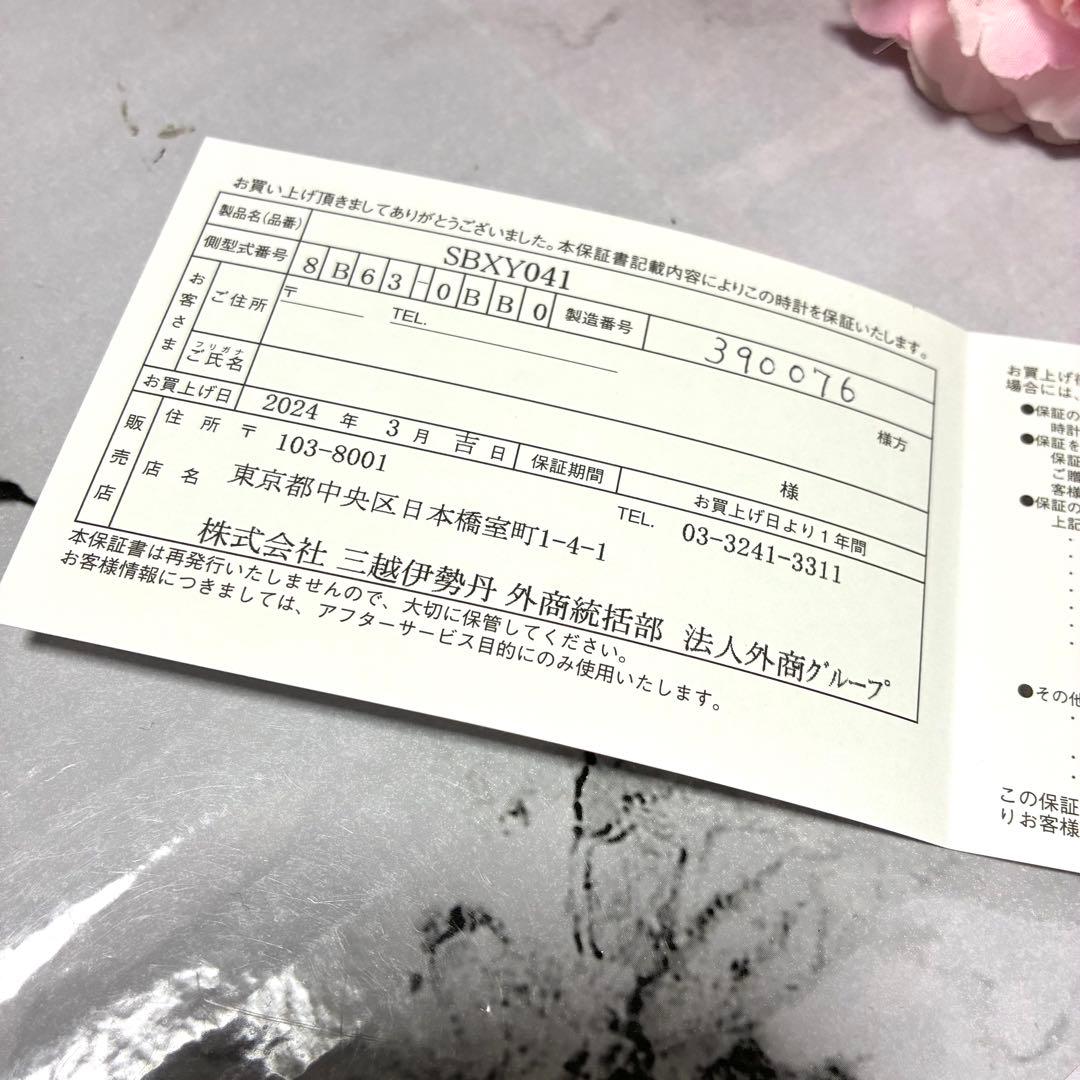 お買い上げ頂きましてありがとうございました。本保証書記載内容によりこの時計を保証いたします。
製品名(品番) SBXY041
側型式番号 8B63-0BB0 製造番号 390076
お客さま ご住所 〒 TEL. 様方
フリガナ
ご氏名 様
お買上げ日 2024 年 3 月 吉 日 保証期間 お買上げ日より1年間
販売店 住所 〒 103-8001 TEL. 03-3241-3311
東京都中央区日本橋室町1-4-1
店名 株式会社 三越伊勢丹 外商統括部 法人外商グループ
本保証書は再発行いたしませんので、大切に保管してください。
お客様情報につきましては、アフターサービス目的にのみ使用いたします。
お買上げ
場合には、
●保証の
時計
●保証を
保証
ご贈
客様
●保証の
上記
・
・
・
・
・
・
・
●その他
・
・
・
この保証
りお客様